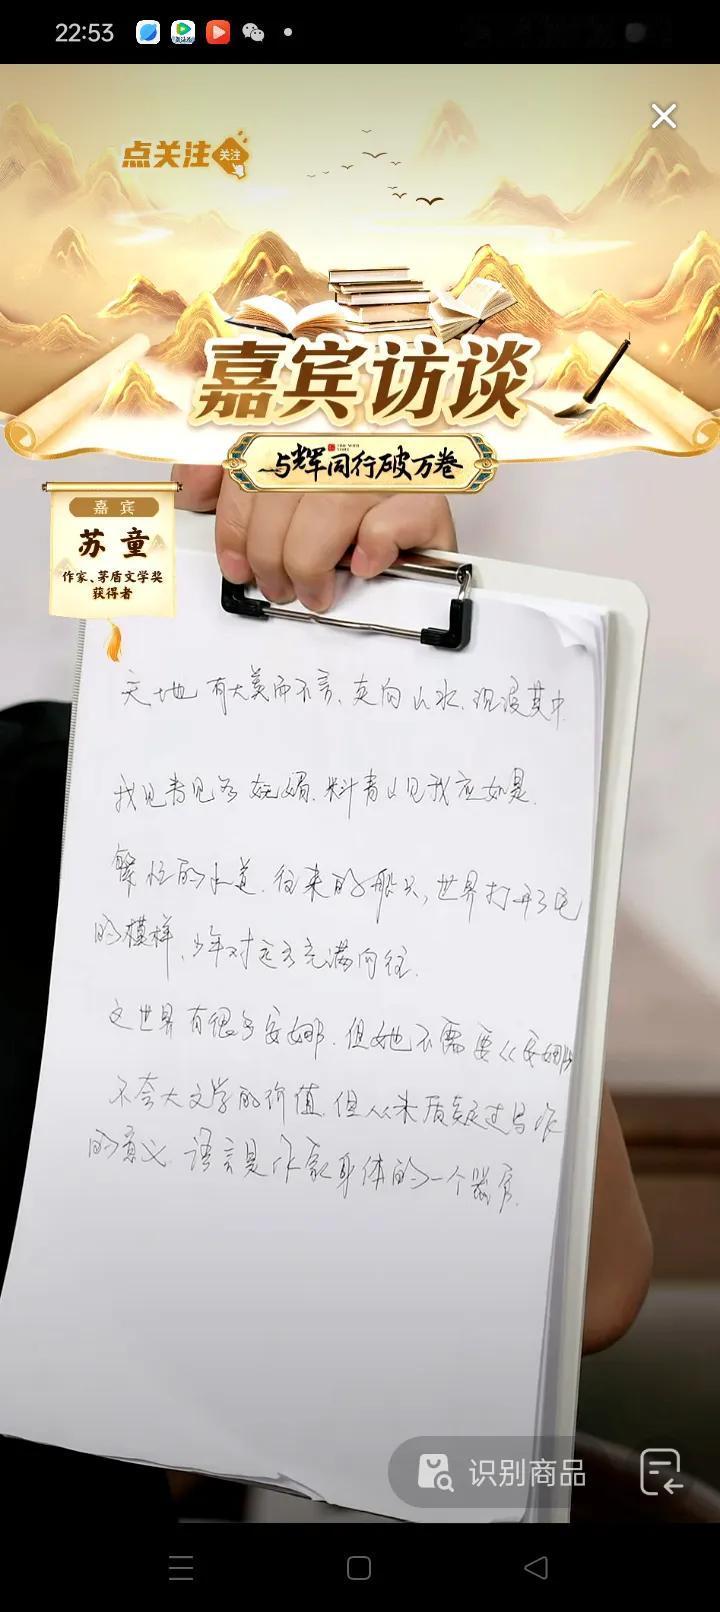 22:53
点关注
关注
嘉宾访谈
与辉同行破万卷
嘉宾
苏童
作家、茅盾文学奖
获得者
天地有大美而不言、奔向山水、沉浸其中
我见青见多妩媚、料青山见我应如是
繁忙的水道、往来的船只,世界打开了它
的模样、少年对远方充满向往
这世界有很多安娜、但她不需要《安娜
不夸大文学的价值、但从未质疑过写作
的意义、语言是作家身体的一个器官
识别商品